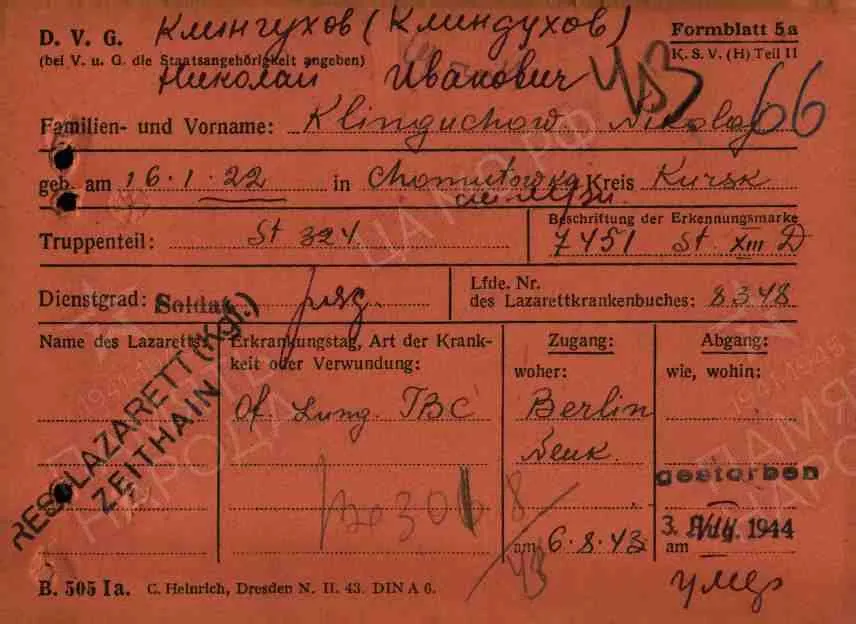 D. V. G. Клингухов (Клиндухов) Formblatt 5a
(bei V. u. G. die Staatsangehörigkeit angeben) K. S. V. (H) Teil II
Николай Иванович
66
Familien- und Vorname: Klinguchow Nikolaj
geb. am 16.1.22 in Chomutowka Kreis Kursk
Truppenteil: St 324
Beschriftung der Erkennungsmarke
7451 St. XIII D
Dienstgrad: Soldat
Lfde. Nr.
des Lazarettkrankenbuches: 8348
Name des Lazaretts:
RES. LAZARETT (Kgf.)
ZEITHAIN
Erkrankungstag, Art der Krank-
keit oder Verwundung:
Of. Lung. TBC
Zugang:
woher:
Berlin
Neuk.
am 6.8.43
Abgang:
wie, wohin:
gestorben
am 3. Aug. 1944
умер
B. 505 Ia. C. Heinrich, Dresden N. II. 43. DIN A 6.
ЦА МО РФ
ПАМЯТЬ
НАРОДА
1941-1945